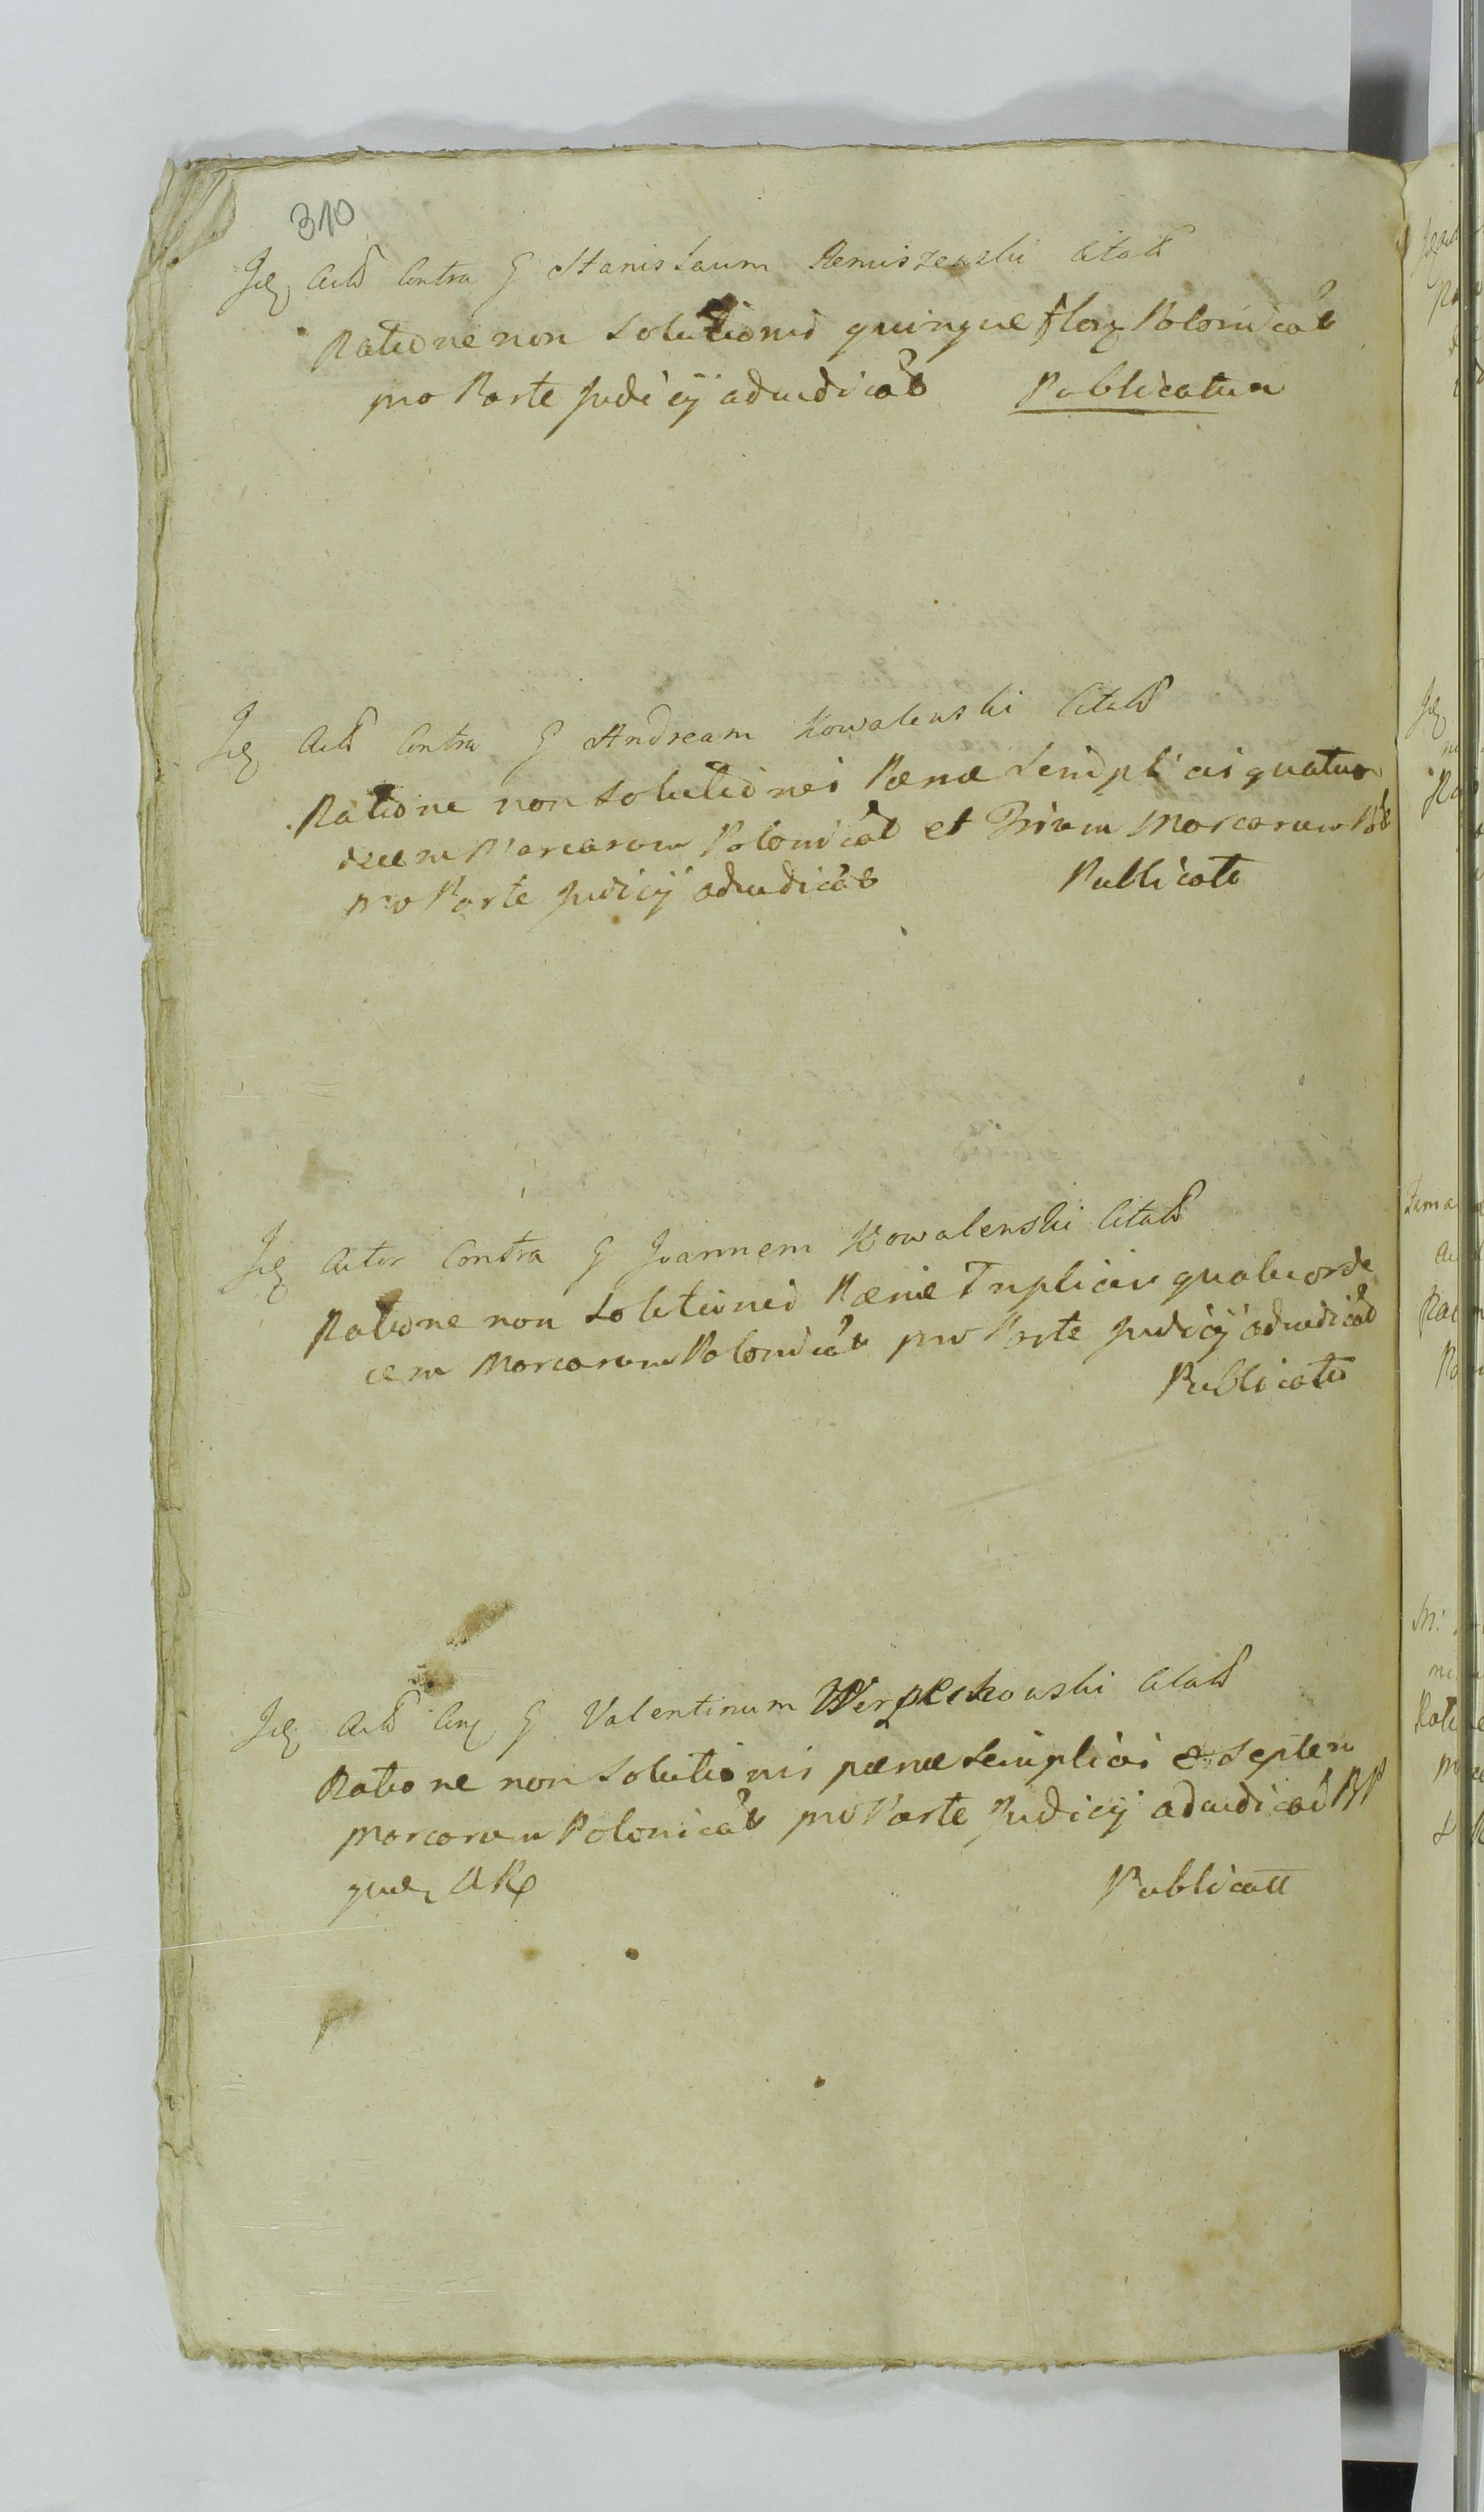 310
Contra G Stanislaum Remiszewski Citat
Ratione non Solutionis quinque flor Polonicat
pro Parte Judicij adiudicat Publicatur
Contra G Andream Kowalewski Citat
Ratione non Solutionis Pænæ Simplicis quatuor
decem Marcarum Polonicat et Trium Marcarum Pol
pro Parte Judicij adiudicat Publicat
Actor Contra G Joannem Kowalewski Citat
Ratione non Solutionis Pænæ Triplicis quatuorde
cem Marcarum Polonicat pro Parte Judicij adiudicat
Publicat
G Valentinum Wierzchowski Citat
Ratione non Solutionis pænæ Simplicis & Septem
Marcarum Polonicat pro Parte Judicij adiudicat
Publicatt